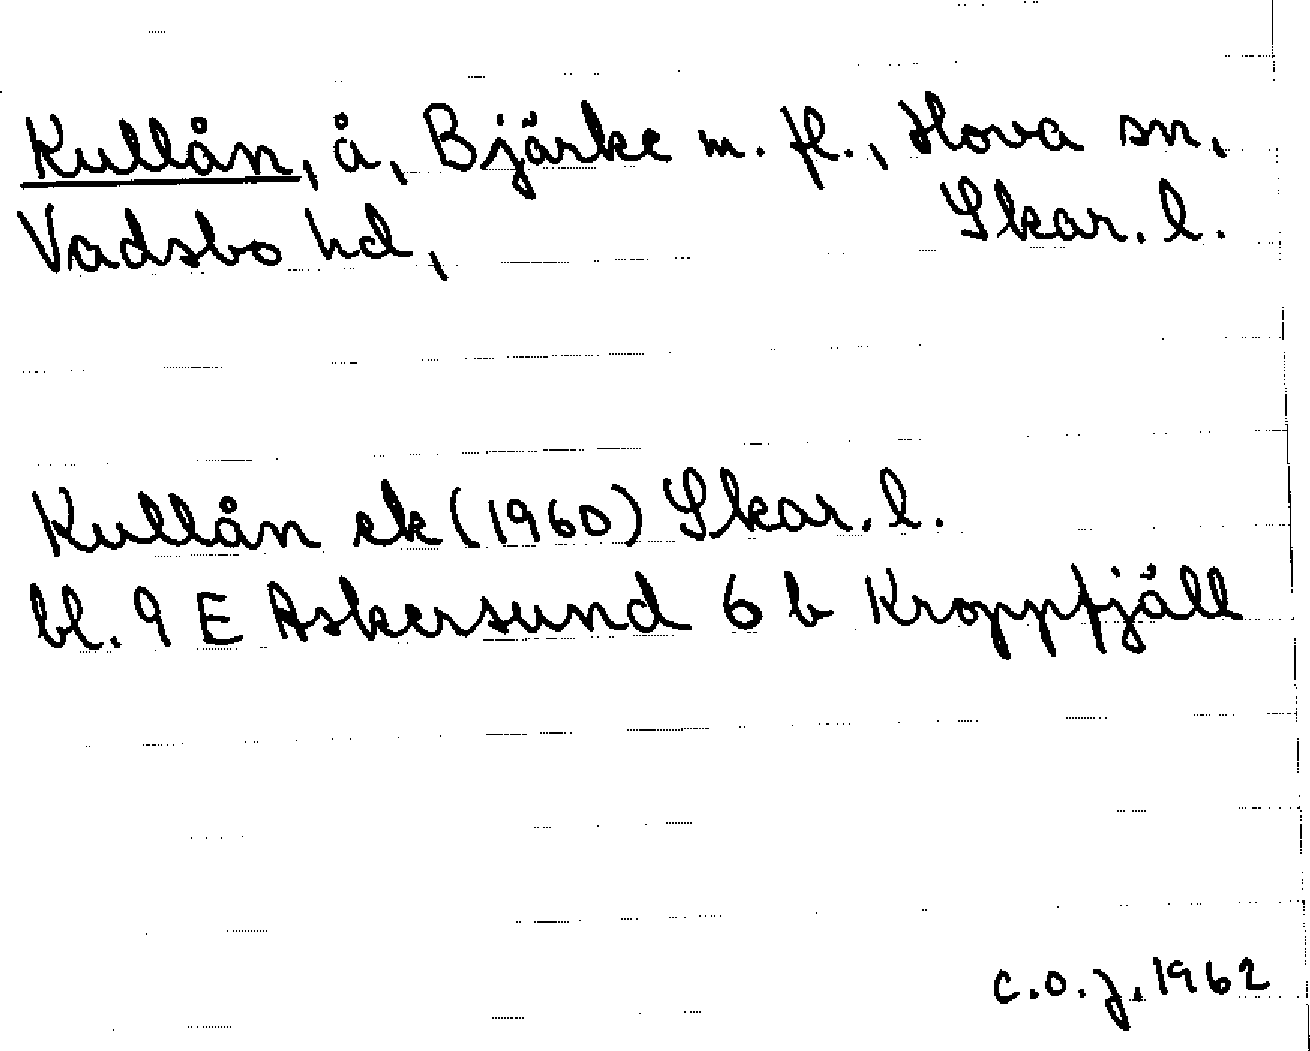 Kullån, å, Bjärke m. fl., Hova sn,
Vadsbo hd, Skar. l.
Kullån ek (1960) Skar. l.
bl. 9 E Askersund 6 b Kroppfjäll
C.O.J. 1962